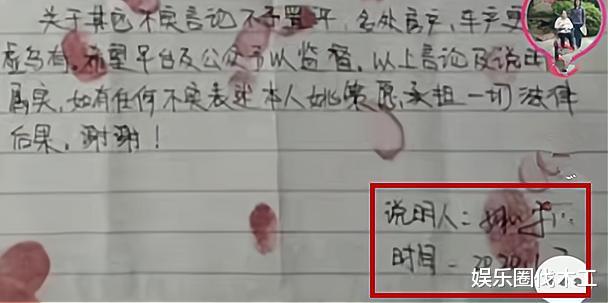 关于其它不实言论不予置评,名处房产,车产更
虚乌有,希望平台及公众予以监督,以上言论及说出
属实,如有任何不实表述本人姚策愿承担一切法律
后果,谢谢!
说明人:姚策
时间 - 2020.1
娱乐圈伐木工